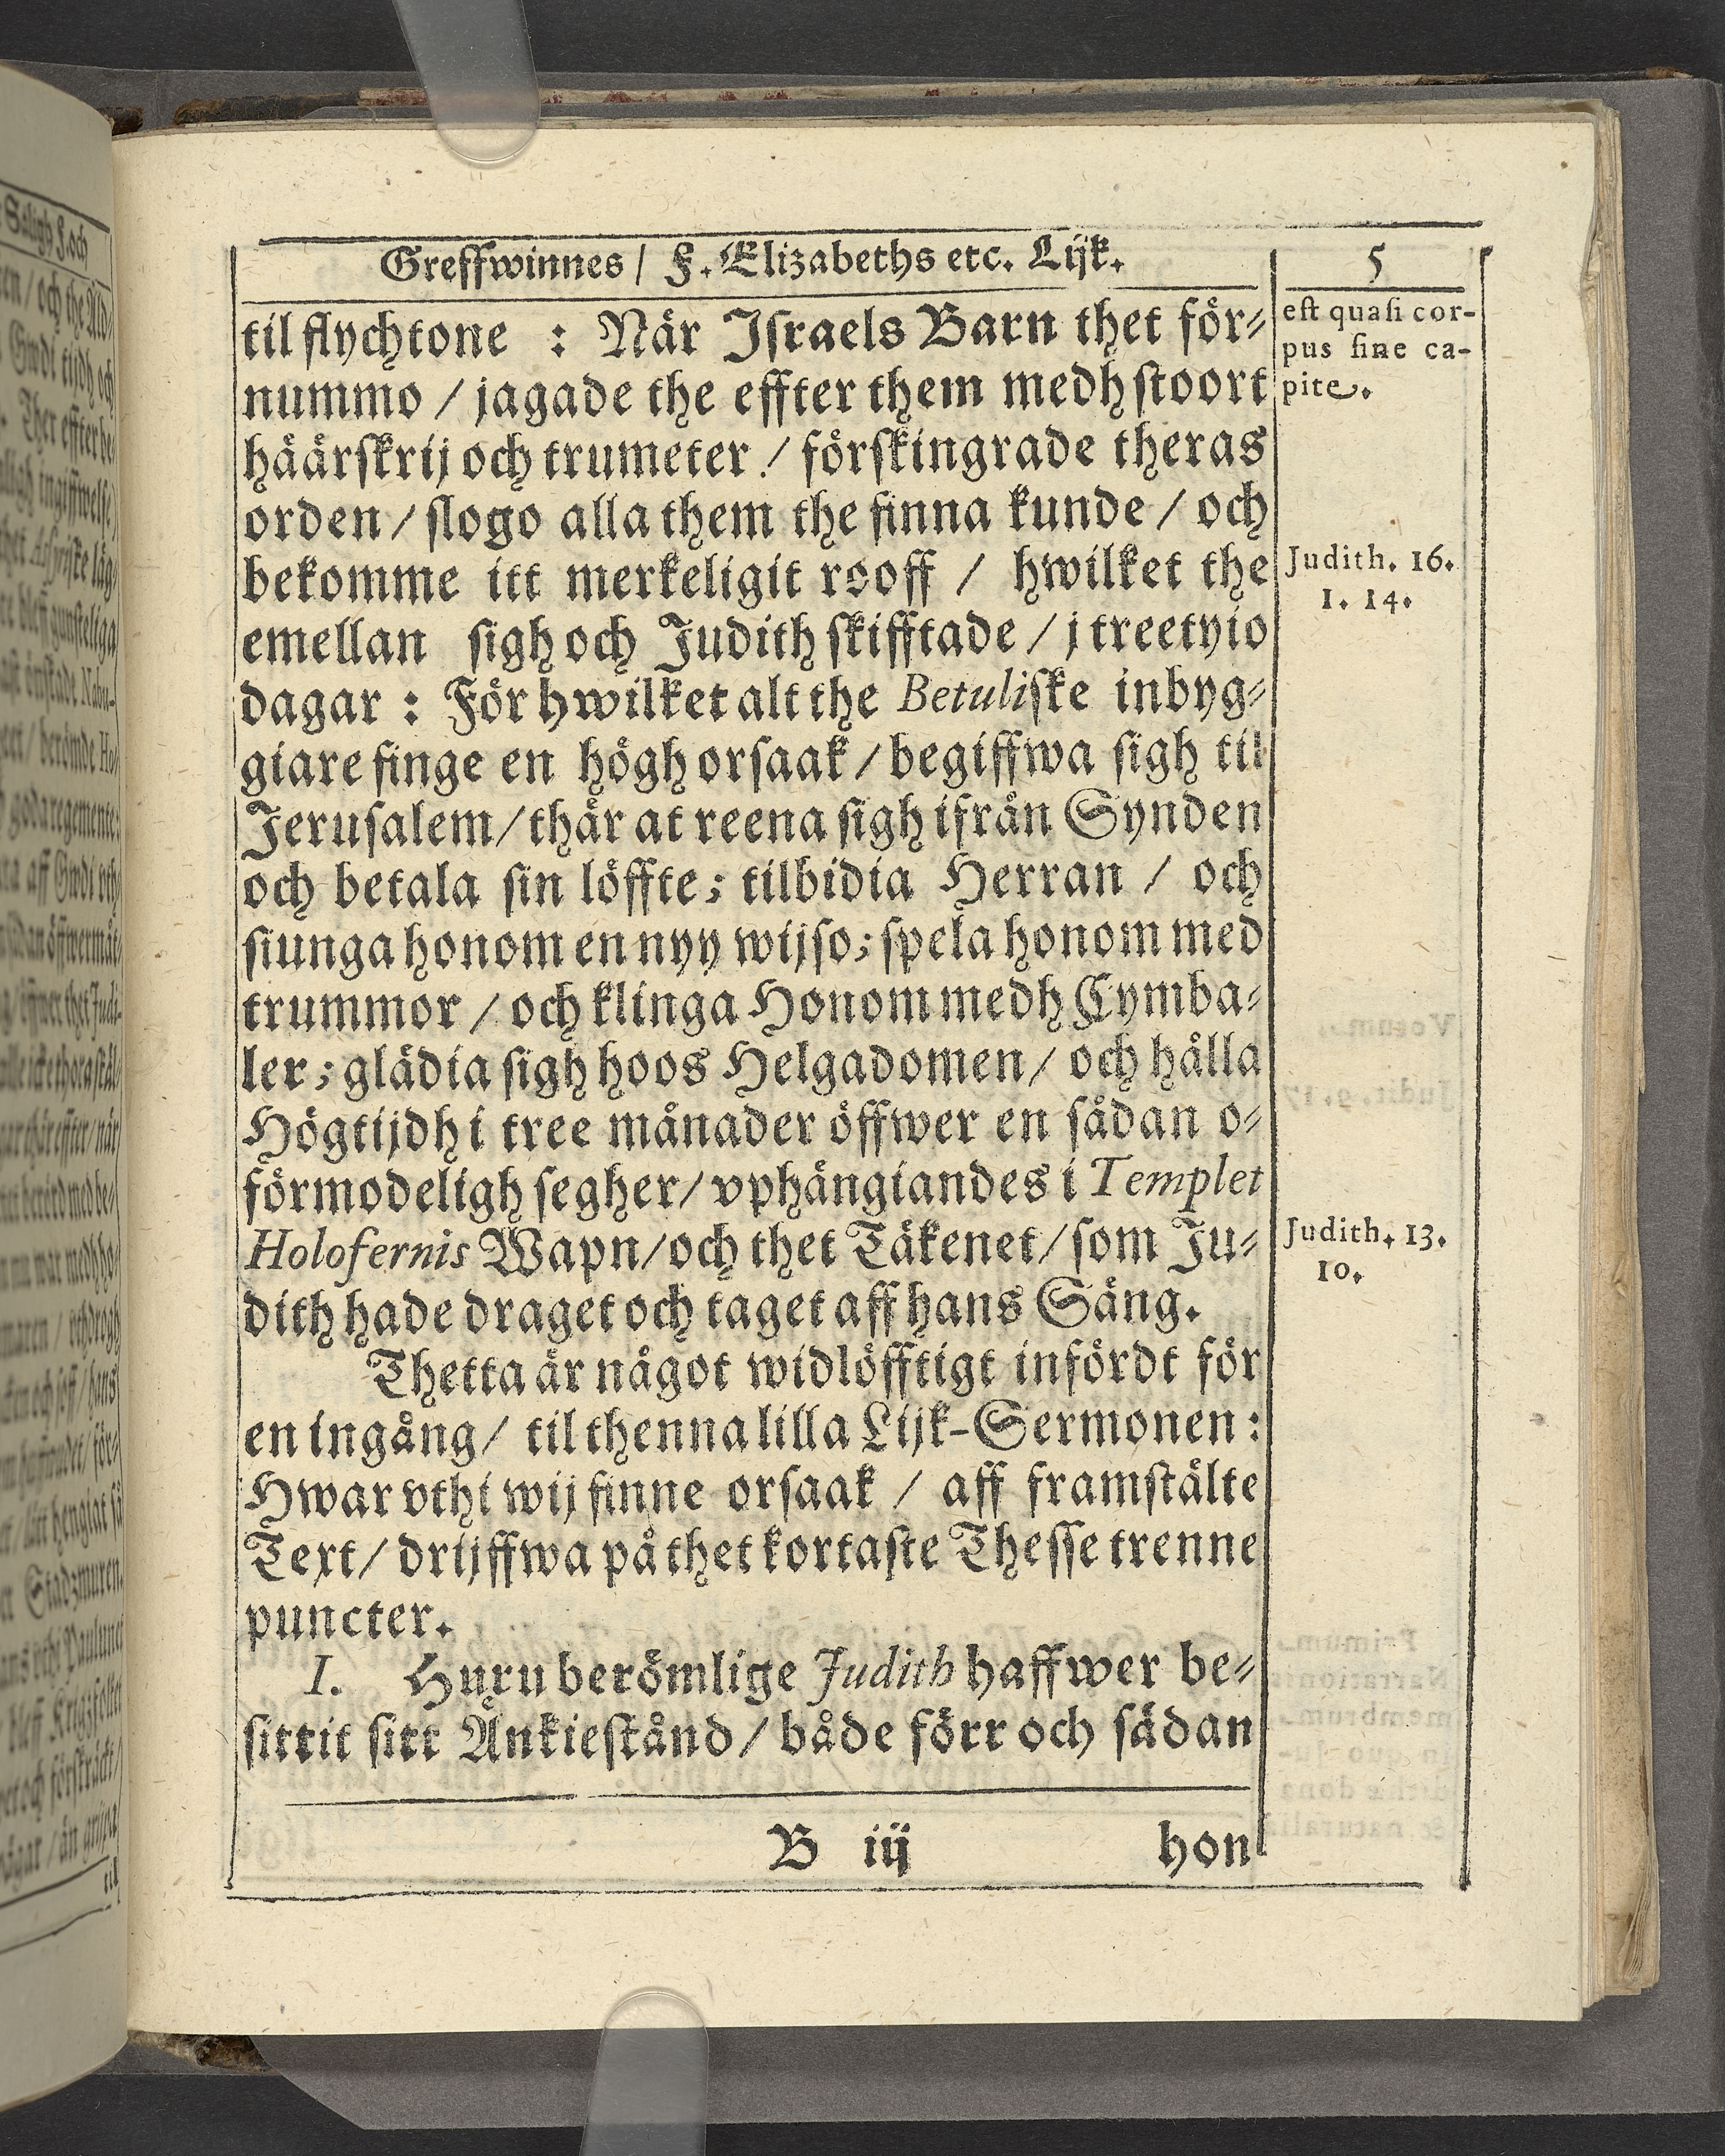 Greffwinnes / F. Elizabeths etc. Lijk. 5
til flychtone : När Israels Barn thet för-
nummo / jagade the effter them medh stoort
häärskrij och trumeter / förskingrade theras
orden / slogo alla them the finna kunde / och
bekomme itt merkeligit rooff / hwilket the
emellan sigh och Judith skifftade / j treetyio
dagar : För hwilket alt the Betuliske inbyg-
giare finge en högh orsaak / begiffwa sigh til
Jerusalem / thär at reena sigh ifrån Synden
och betala sin löffte ; tilbidia Herran / och
siunga honom en nyy wijso ; spela honom med
trummor / och klinga Honom medh Cymba-
ler ; glädia sigh hoos Helgadomen / och hålla
Högtijdh i tree månader öffwer en sådan o-
förmodeligh segher / vphängiandes i Templet
Holofernis Wapn / och thet Täkenet / som Ju-
dith hade draget och taget aff hans Säng.
Thetta är något widlöfftigt infördt för
en ingång / til thenna lilla Lijk-Sermonen :
Hwar vthi wij finne orsaak / aff framstälte
Text / drijffwa på thet kortaste Thesse trenne
puncter.
I. Huru berömlige Judith haffwer be-
sittit sitt Änkiestånd / både förr och sädan
B iij hon
est quasi cor-
pus sine ca-
pite.
Judith. 16.
1. 14.
Judith. 13.
10.